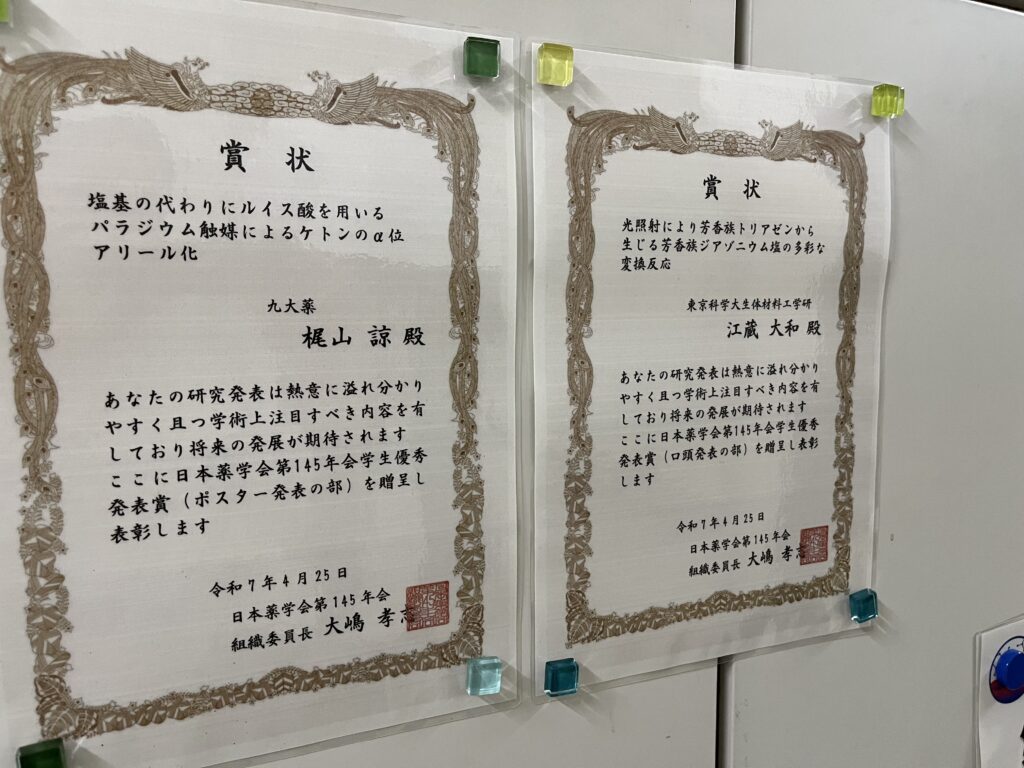 賞 状
塩基の代わりにルイス酸を用いる
パラジウム触媒によるケトンのα位
アリール化
九大薬
梶山 諒 殿
あなたの研究発表は熱意に溢れ分かり
やすく且つ学術上注目すべき内容を有
しており将来の発展が期待されます
ここに日本薬学会第145年会学生優秀
発表賞（ポスター発表の部）を贈呈し
表彰します
令和7年4月25日
日本薬学会第145年会
組織委員長 大嶋 孝志
賞 状
光照射により芳香族トリアゼンから
生じる芳香族ジアゾニウム塩の多彩な
変換反応
東京科学大生体材料工学研
江蔵 大和 殿
あなたの研究発表は熱意に溢れ分かり
やすく且つ学術上注目すべき内容を有
しており将来の発展が期待されます
ここに日本薬学会第145年会学生優秀
発表賞（口頭発表の部）を贈呈し表彰
します
令和7年4月25日
日本薬学会第145年会
組織委員長 大嶋 孝志